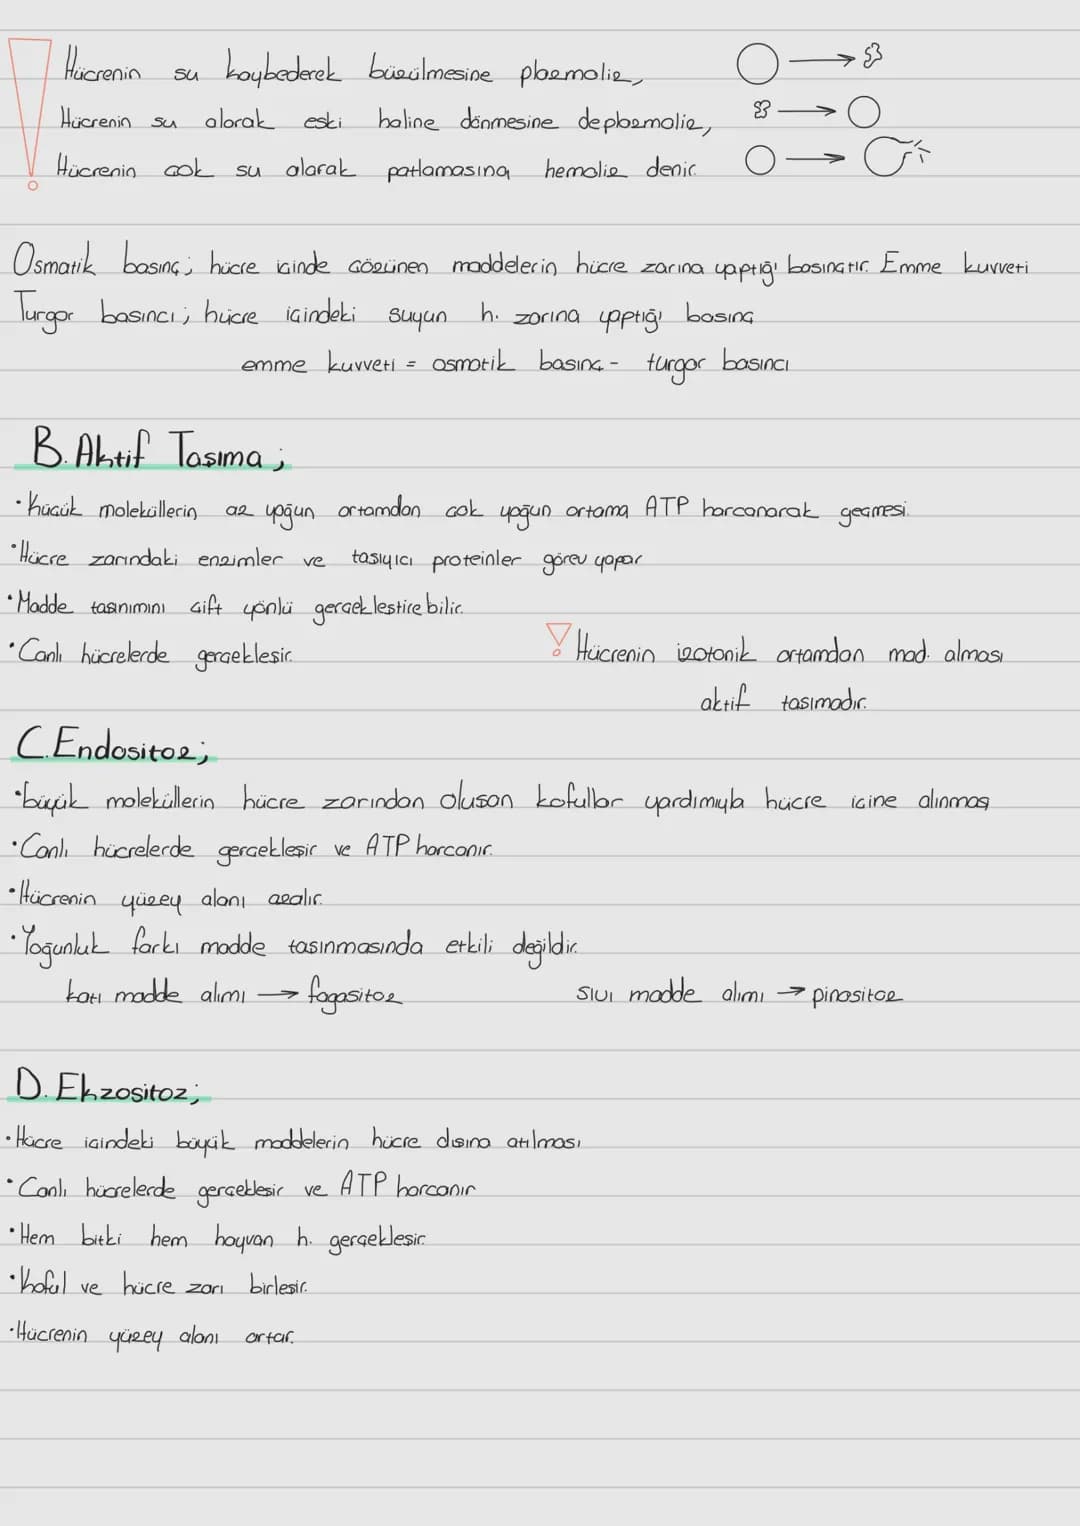 Hücrenin su kaybederek büzülmesine plazmoliz,
Hücrenin su alarak eski haline dönmesine deplazmoliz,
Hücrenin çok su alarak patlamasına hemoliz denir.
Osmatik basınç; hücre içinde çözünen maddelerin hücre zarına yaptığı basınçtır. Emme kuvveti
Turgor basıncı; hücre içindeki suyun h. zarına yaptığı basınç
emme kuvveti = osmotik basınç - turgor basıncı
B. Aktif Taşıma;
• Küçük moleküllerin az yoğun ortamdan çok yoğun ortama ATP harcanarak geçmesi.
• Hücre zarındaki enzimler ve taşıyıcı proteinler görev yapar
• Madde taşınımını çift yönlü gerçekleştirebilir.
• Canlı hücrelerde gerçekleşir.
! Hücrenin izotonik ortamdan mad. alması
aktif taşımadır.
C. Endositoz;
• büyük moleküllerin hücre zarından oluşan kofullar yardımıyla hücre içine alınması
• Canlı hücrelerde gerçekleşir ve ATP harcanır.
• Hücrenin yüzey alanı azalır.
• Yoğunluk farkı madde taşınmasında etkili değildir.
katı madde alımı → fagositoz sıvı madde alımı → pinositoz
D. Ekzositoz;
• Hücre içindeki büyük maddelerin hücre dışına atılması
• Canlı hücrelerde gerçekleşir ve ATP harcanır
• Hem bitki hem hayvan h. gerçekleşir.
• Koful ve hücre zarı birleşir.
• Hücrenin yüzey alanı artar.